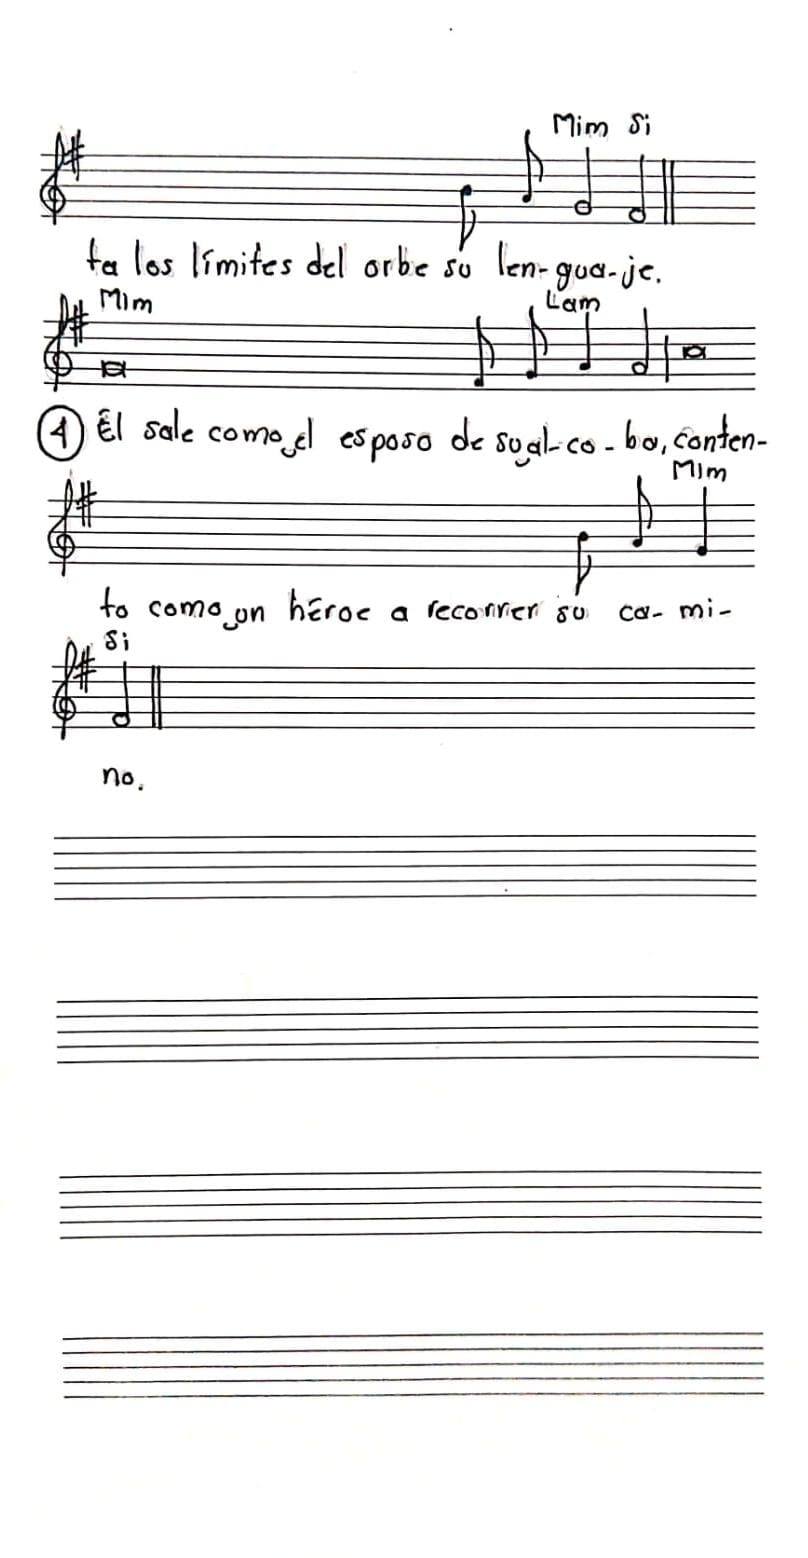 Mim Si
ta los límites del orbe su len-gua-je.
Mim Lam
④ Él sale como‿el esposo de su‿al-co-ba, conten-
Mim
to como‿un héroe a recorrer su ca-mi-
Si
no.